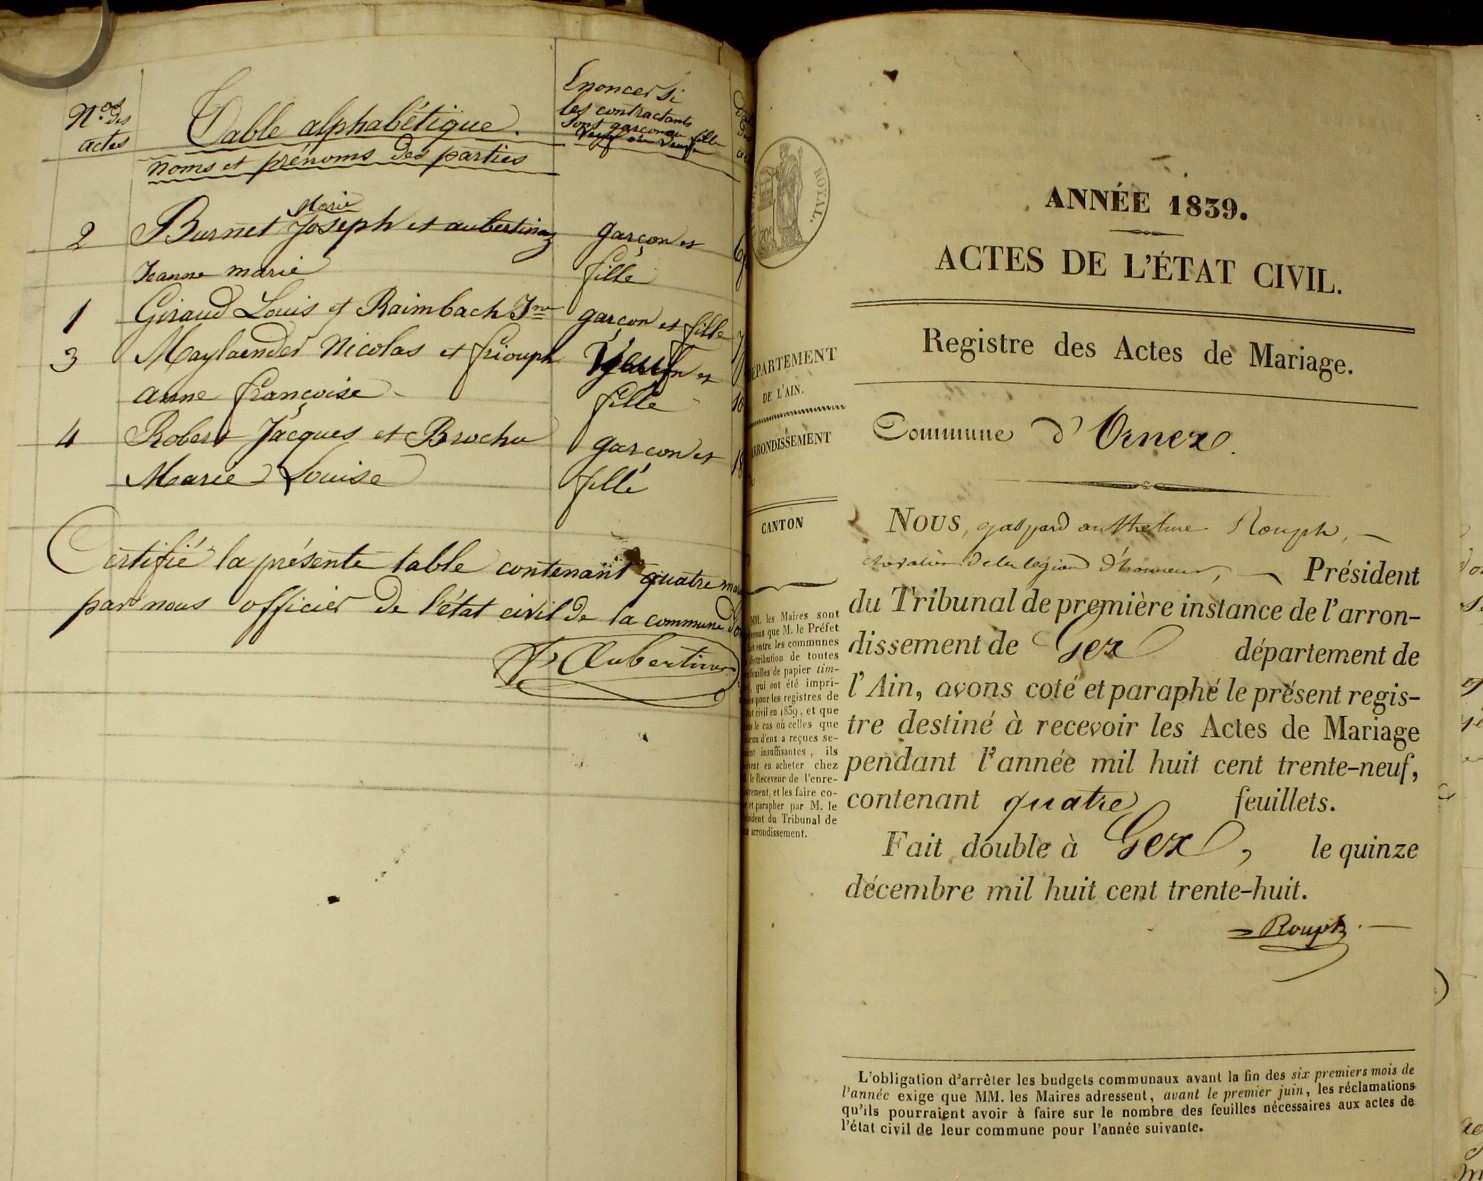 Nos des
actes
Table alphabétique.
noms et prénoms des parties
Enoncer si
les contractants
sont garçon ou fille
veuf ou veuve
2 Burnet Marie Joseph et aubertin garçon et
Jeanne marie fille
1 Giraud Louis et Raimbach Jne garçon et fille
3 Maylaender Nicolas et friouph Veuf et
anne françoise fille
4 Robert Jacques et Brochu garçon et
Marie Louise fille
Certifié la présente table contenant quatre
par nous officier de l'état civil de la commune
Aubertin
ROYAL.
ANNÉE 1839.
ACTES DE L'ÉTAT CIVIL.
Registre des Actes de Mariage.
DÉPARTEMENT
DE L'AIN.
ARRONDISSEMENT
CANTON
Commune d'Ornex.
NOUS, gaspard anthelme Rouph,
chevalier de la légion d'honneur, Président
du Tribunal de première instance de l'arron-
dissement de Gex département de
l'Ain, avons coté et paraphé le présent regis-
tre destiné à recevoir les Actes de Mariage
pendant l'année mil huit cent trente-neuf,
contenant quatre feuillets.
Fait double à Gex, le quinze
décembre mil huit cent trente-huit.
Rouph
MM. les Maires sont
que M. le Préfet
entre les communes
distribution de toutes
feuilles de papier tim-
qui ont été impri-
pour les registres de
civil en 1839, et que
le cas où celles que
d'eux a reçues se-
insuffisantes, ils
en acheter chez
le Receveur de l'enre-
et les faire co-
et parapher par M. le
du Tribunal de
arrondissement.
L'obligation d'arrêter les budgets communaux avant la fin des six premiers mois de
l'année exige que MM. les Maires adressent, avant le premier juin, les réclamations
qu'ils pourraient avoir à faire sur le nombre des feuilles nécessaires aux actes de
l'état civil de leur commune pour l'année suivante.